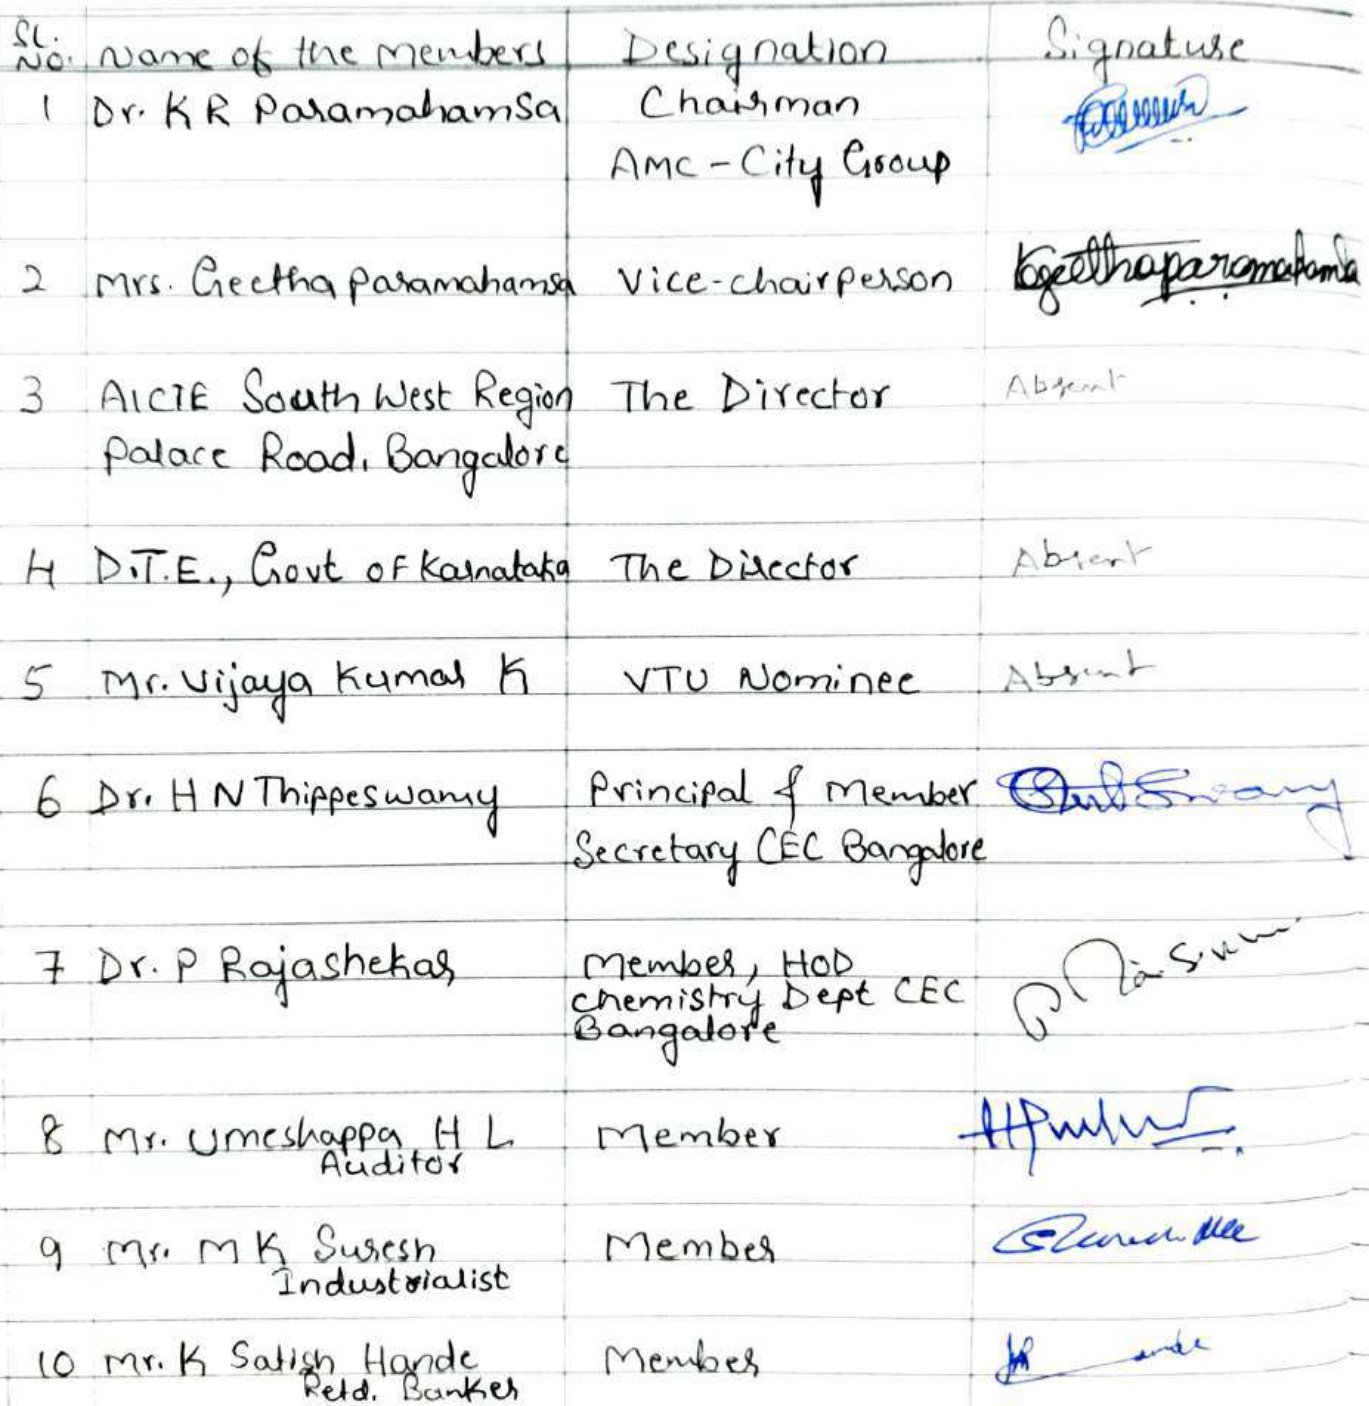 Sl. No. Name of the Members Designation Signature
1 Dr. K R Paramahamsa Chairman
AMC - City Group
2 Mrs. Geetha Paramahamsa Vice-chairperson Kgeethaparamahamsa
3 AICTE South West Region The Director Absent
Palace Road, Bangalore
4 D.T.E., Govt of Karnataka The Director Absent
5 Mr. Vijaya Kumar K VTU Nominee Absent
6 Dr. H N Thippeswamy Principal & Member
Secretary CEC Bangalore
7 Dr. P Rajashekar Member, HOD
Chemistry Dept CEC
Bangalore
8 Mr. Umeshappa H L Member
Auditor
9 Mr. M K Suresh Member
Industrialist
10 Mr. K Satish Hande Member
Retd. Banker